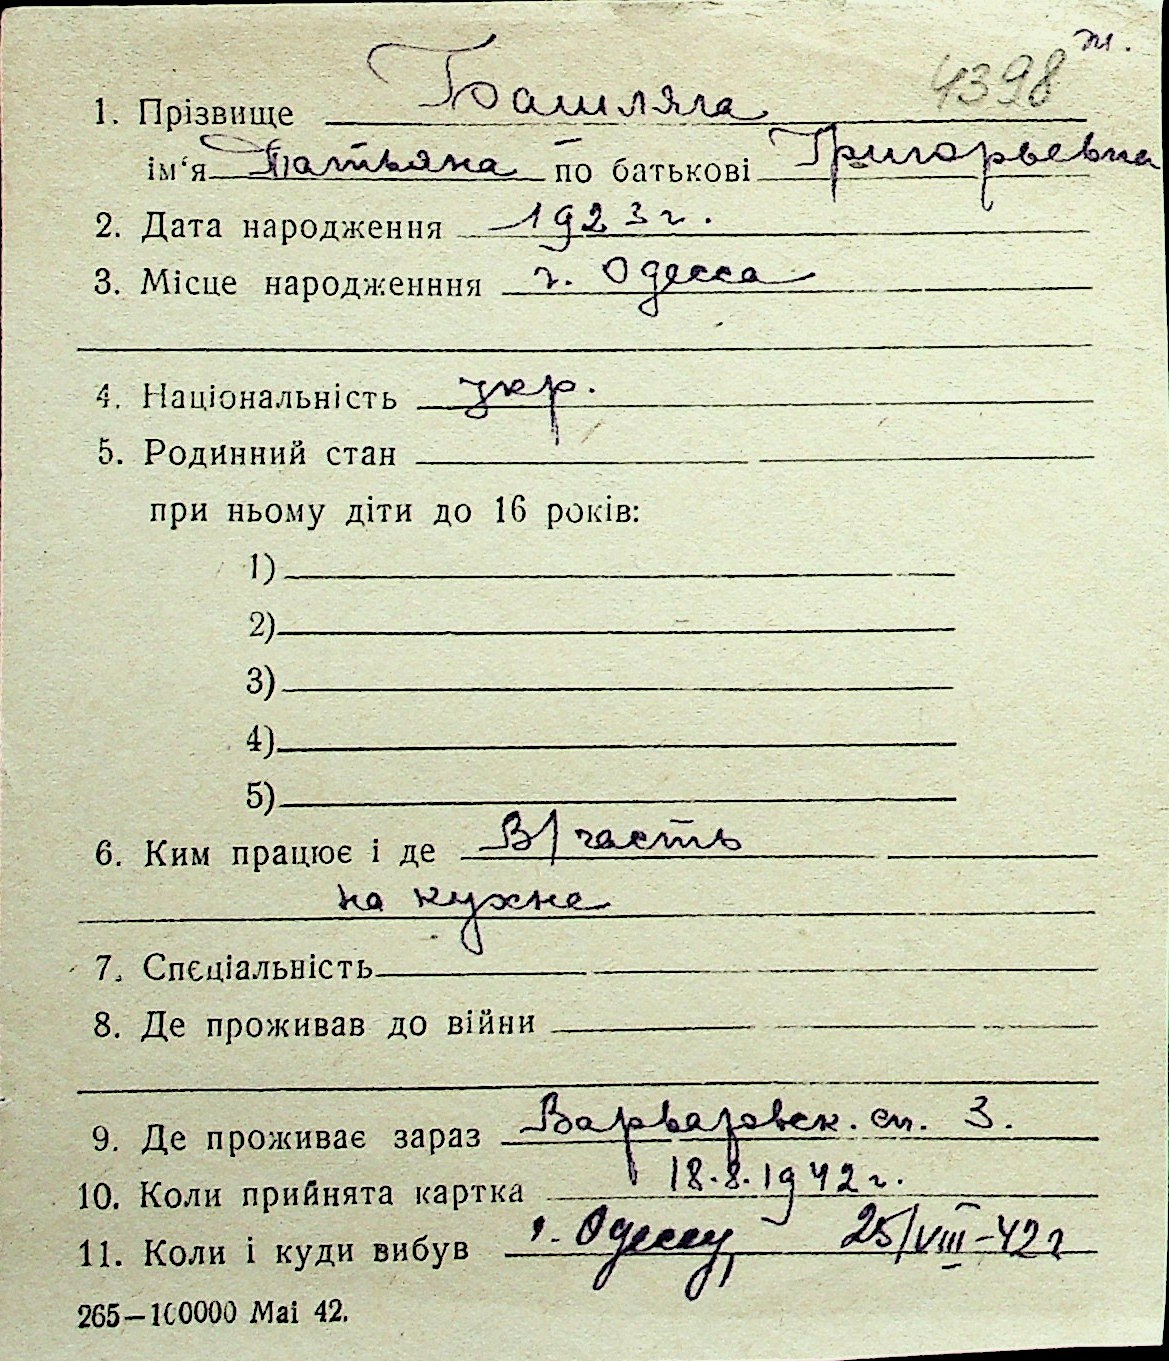 ж.
4398
1. Прізвище Башляга
ім‘я Татьяна по батькові Григорьевна
2. Дата народження 1923 г.
3. Місце народженння г. Одесса
4. Національність укр.
5. Родинний стан
при ньому діти до 16 років:
1)
2)
3)
4)
5)
6. Ким працює і де В/часть
на кухне
7. Спєціальність
8. Де проживав до війни
9. Де проживає зараз Варваровск. сп. 3.
10. Коли прийнята картка 18.8.1942 г.
11. Коли і куди вибув г. Одессу 25/VIII-42 г
265—100000 Маі 42.